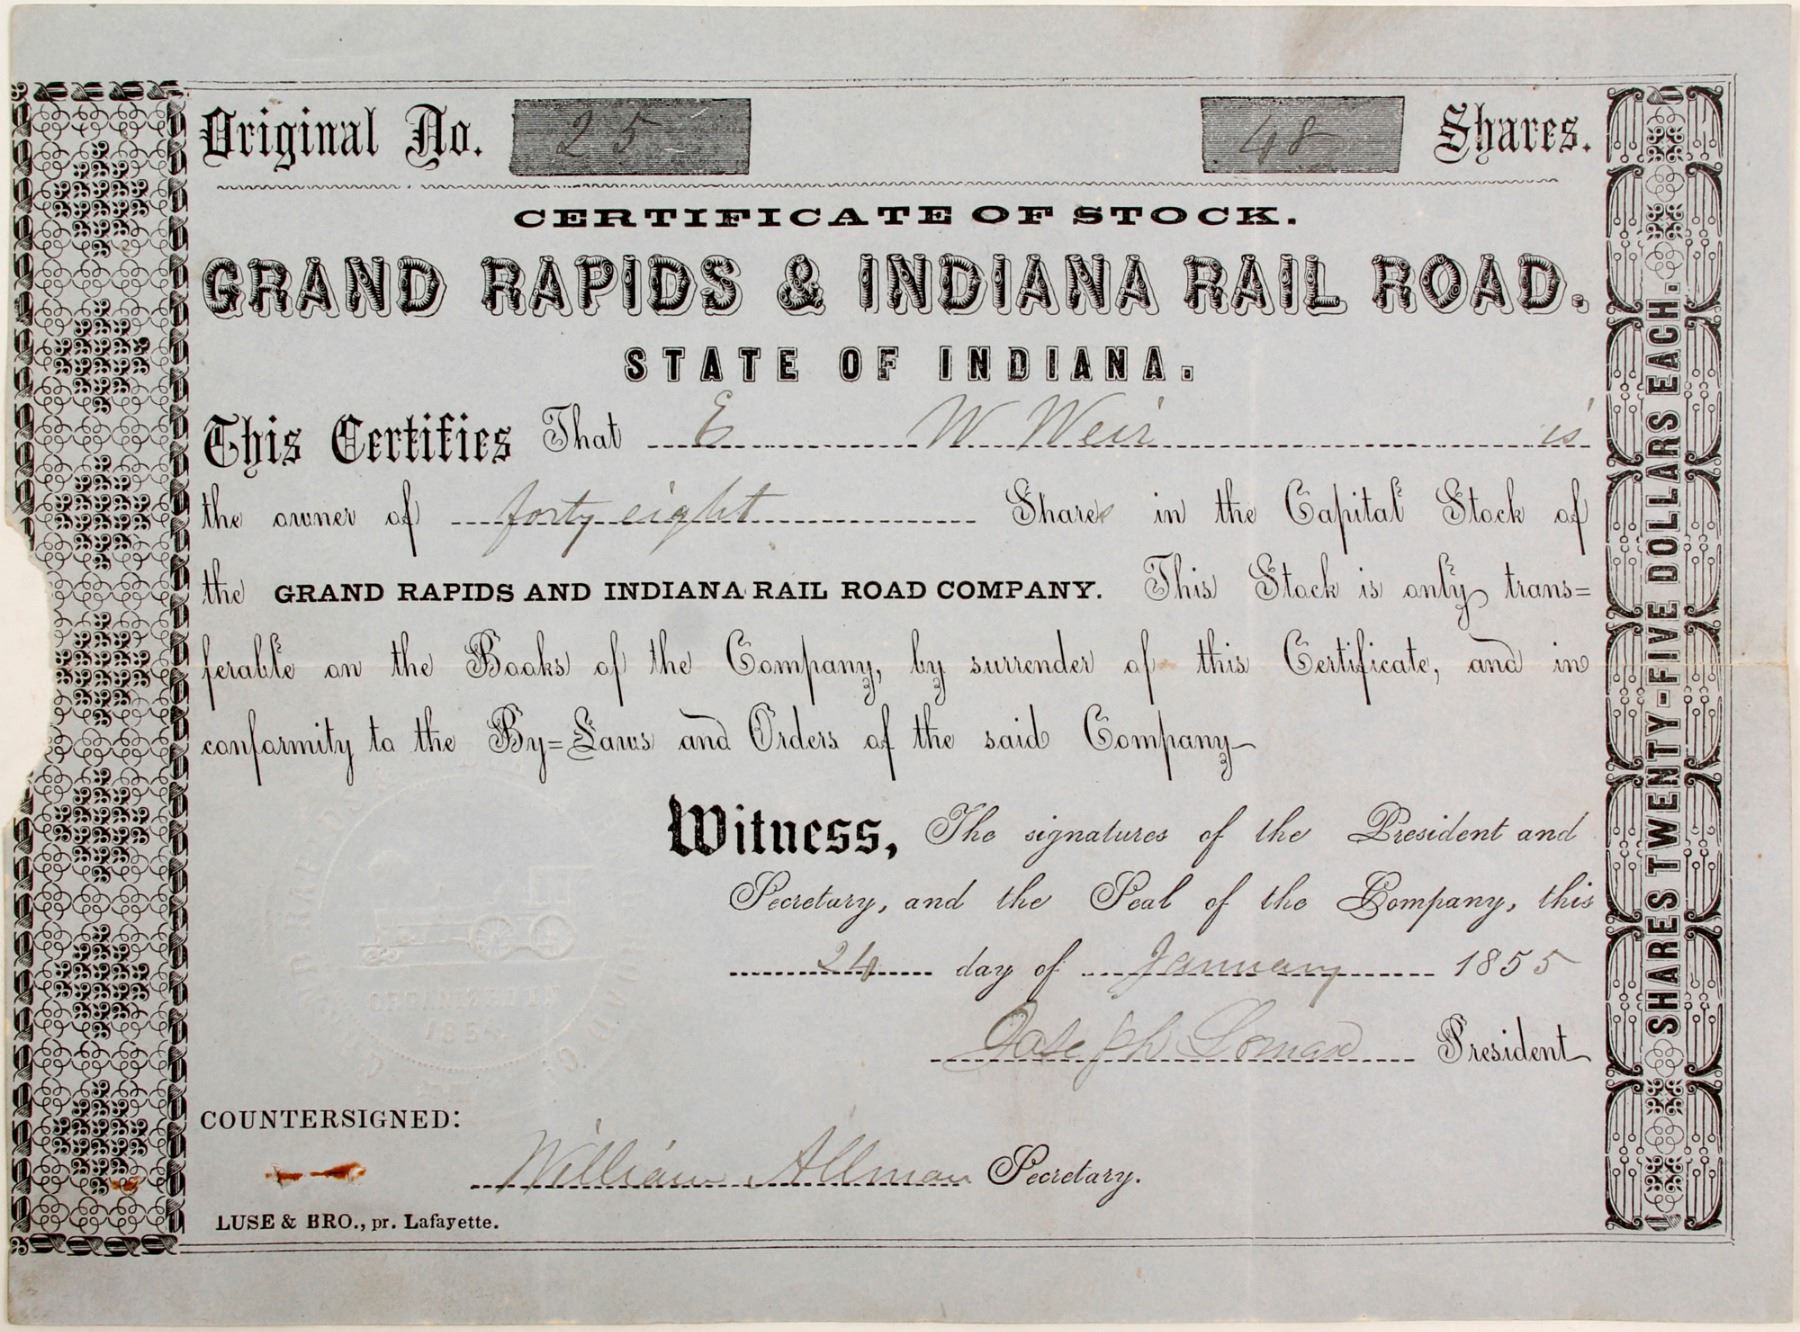 Original No. 25 48 Shares.
CERTIFICATE OF STOCK.
GRAND RAPIDS & INDIANA RAIL ROAD.
STATE OF INDIANA.
This Certifies That E W Weir is
the owner of forty eight Shares in the Capital Stock of
the GRAND RAPIDS AND INDIANA RAIL ROAD COMPANY. This Stock is only trans=
ferable on the Books of the Company, by surrender of this Certificate, and in
conformity to the By=Laws and Orders of the said Company
Witness, The signatures of the President and
Secretary, and the Seal of the Company, this
24 day of January 1855
Joseph Lomax President
COUNTERSIGNED:
William Allman Secretary.
LUSE & BRO., pr. Lafayette.
SHARES TWENTY-FIVE DOLLARS EACH.